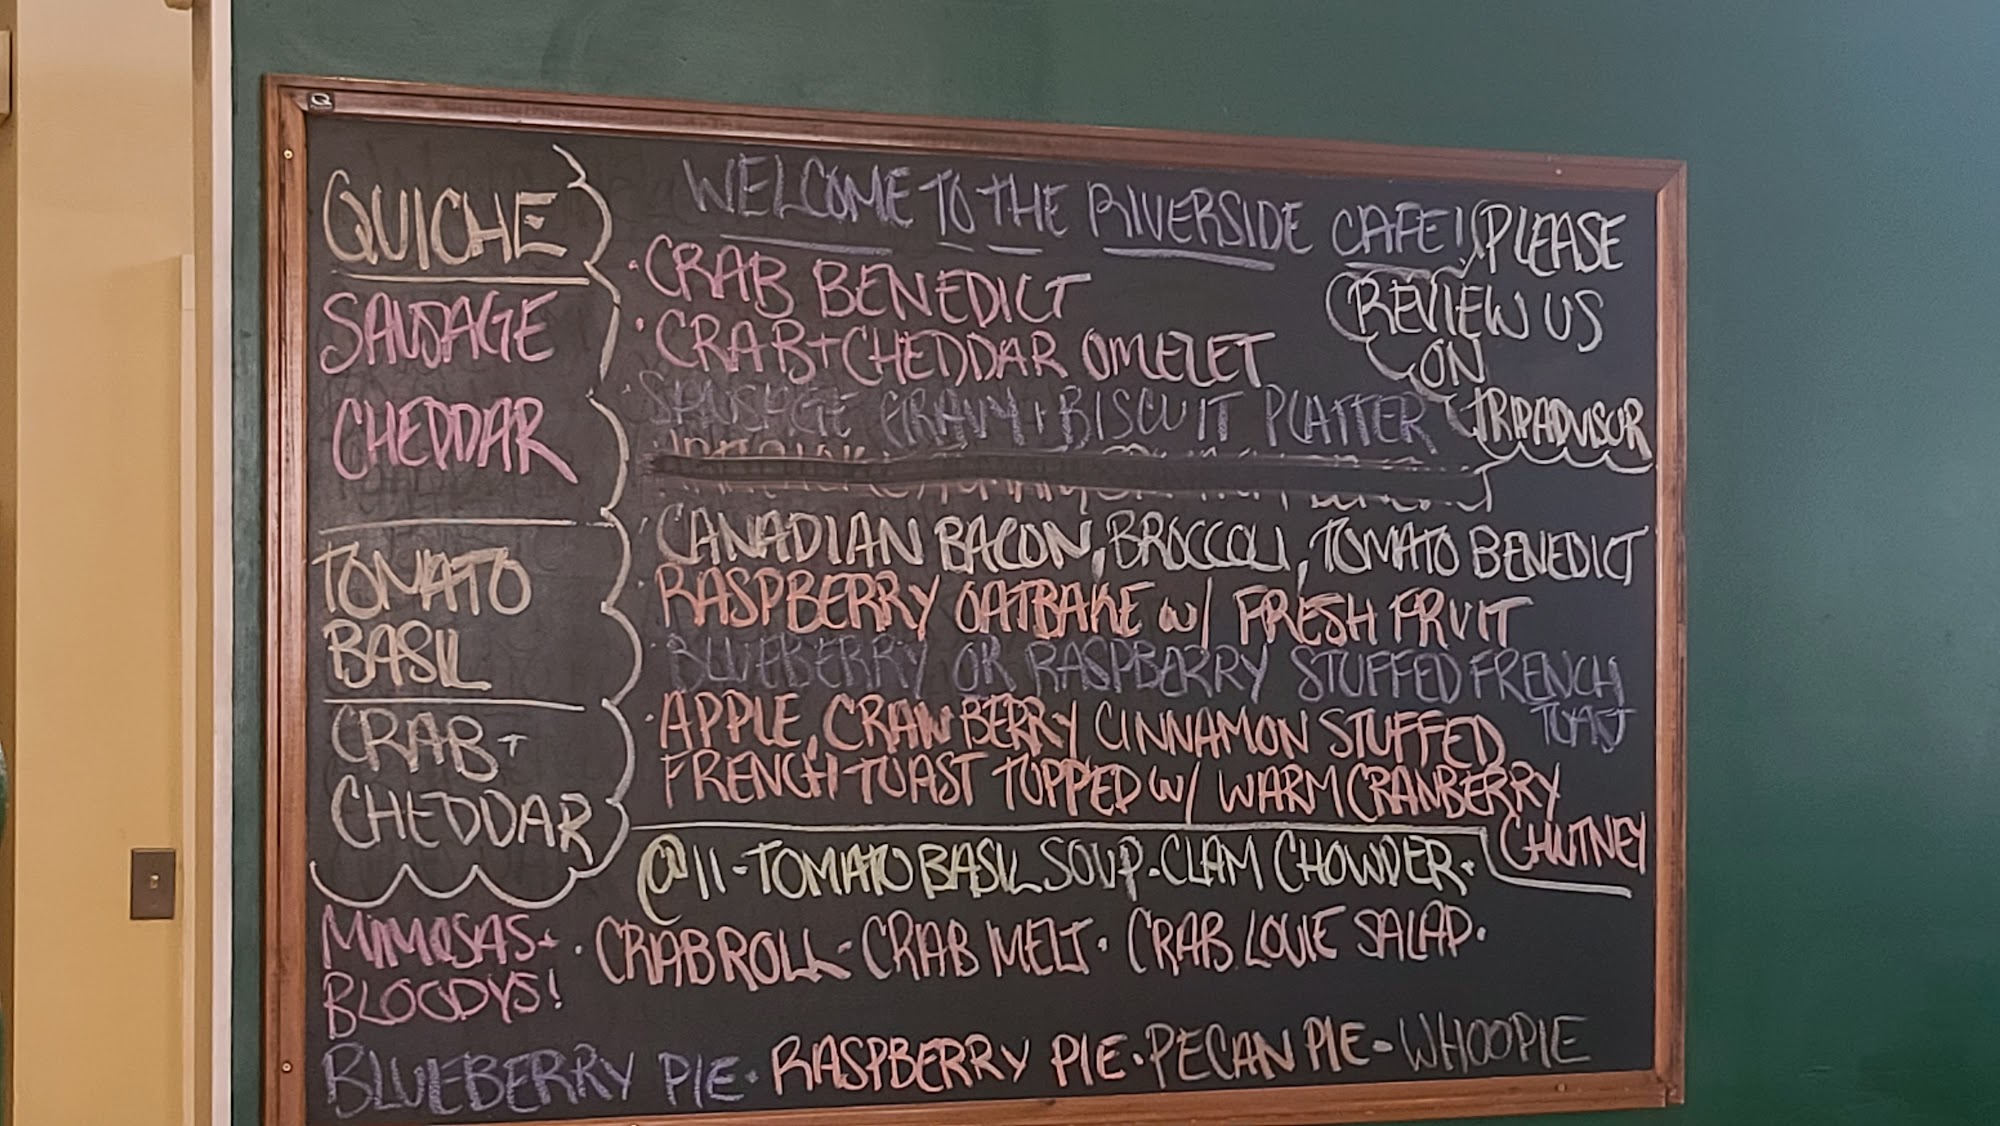 QUICHE
SAUSAGE
CHEDDAR
TOMATO
BASIL
CRAB +
CHEDDAR
MIMOSAS +
BLOODYS!
WELCOME TO THE RIVERSIDE CAFE!
PLEASE
REVIEW US
ON
TRIPADVISOR
· CRAB BENEDICT
· CRAB + CHEDDAR OMELET
· SAUSAGE GRAVY + BISCUIT PLATTER
· CANADIAN BACON, BROCCOLI, TOMATO BENEDICT
· RASPBERRY OATBAKE W/ FRESH FRUIT
· BLUEBERRY OR RASPBERRY STUFFED FRENCH
TOAST
· APPLE, CRANBERRY CINNAMON STUFFED
FRENCH TOAST TOPPED W/ WARM CRANBERRY
CHUTNEY
@11 - TOMATO BASIL SOUP - CLAM CHOWDER ·
· CRAB ROLL - CRAB MELT · CRAB LOUIE SALAD ·
BLUEBERRY PIE · RASPBERRY PIE · PECAN PIE - WHOOPIE